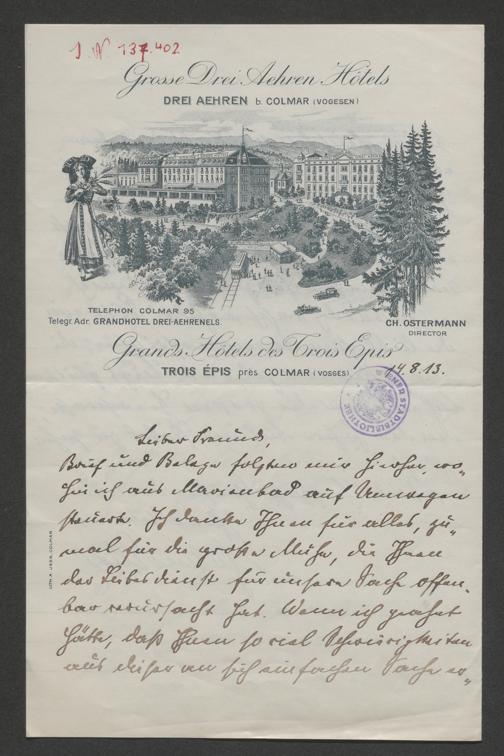 J. N. 137.402
Grosse Drei Aehren Hôtels
DREI AEHREN b. COLMAR (VOGESEN)
TELEPHON COLMAR 95
Telegr. Adr. GRANDHOTEL DREI-AEHRENELS.
CH. OSTERMANN
DIRECTOR
Grands Hôtels des Trois Epis
TROIS ÉPIS près COLMAR (VOSGES)
14.8.13.
WIENER STADTBIBLIOTHEK
Lieber Freund,
Brief und Beilage folgten mir hierher, wo-
hin ich aus Marienbad auf Umwegen
steuerte. Ich danke Ihnen für alles, zu-
mal für die große Mühe, die Ihnen
der Liebesdienst für unsere Sache offen-
bar verursacht hat. Wenn ich geahnt
hätte, daß Ihnen so viel Schwierigkeiten
aus dieser an sich einfachen Sache er-